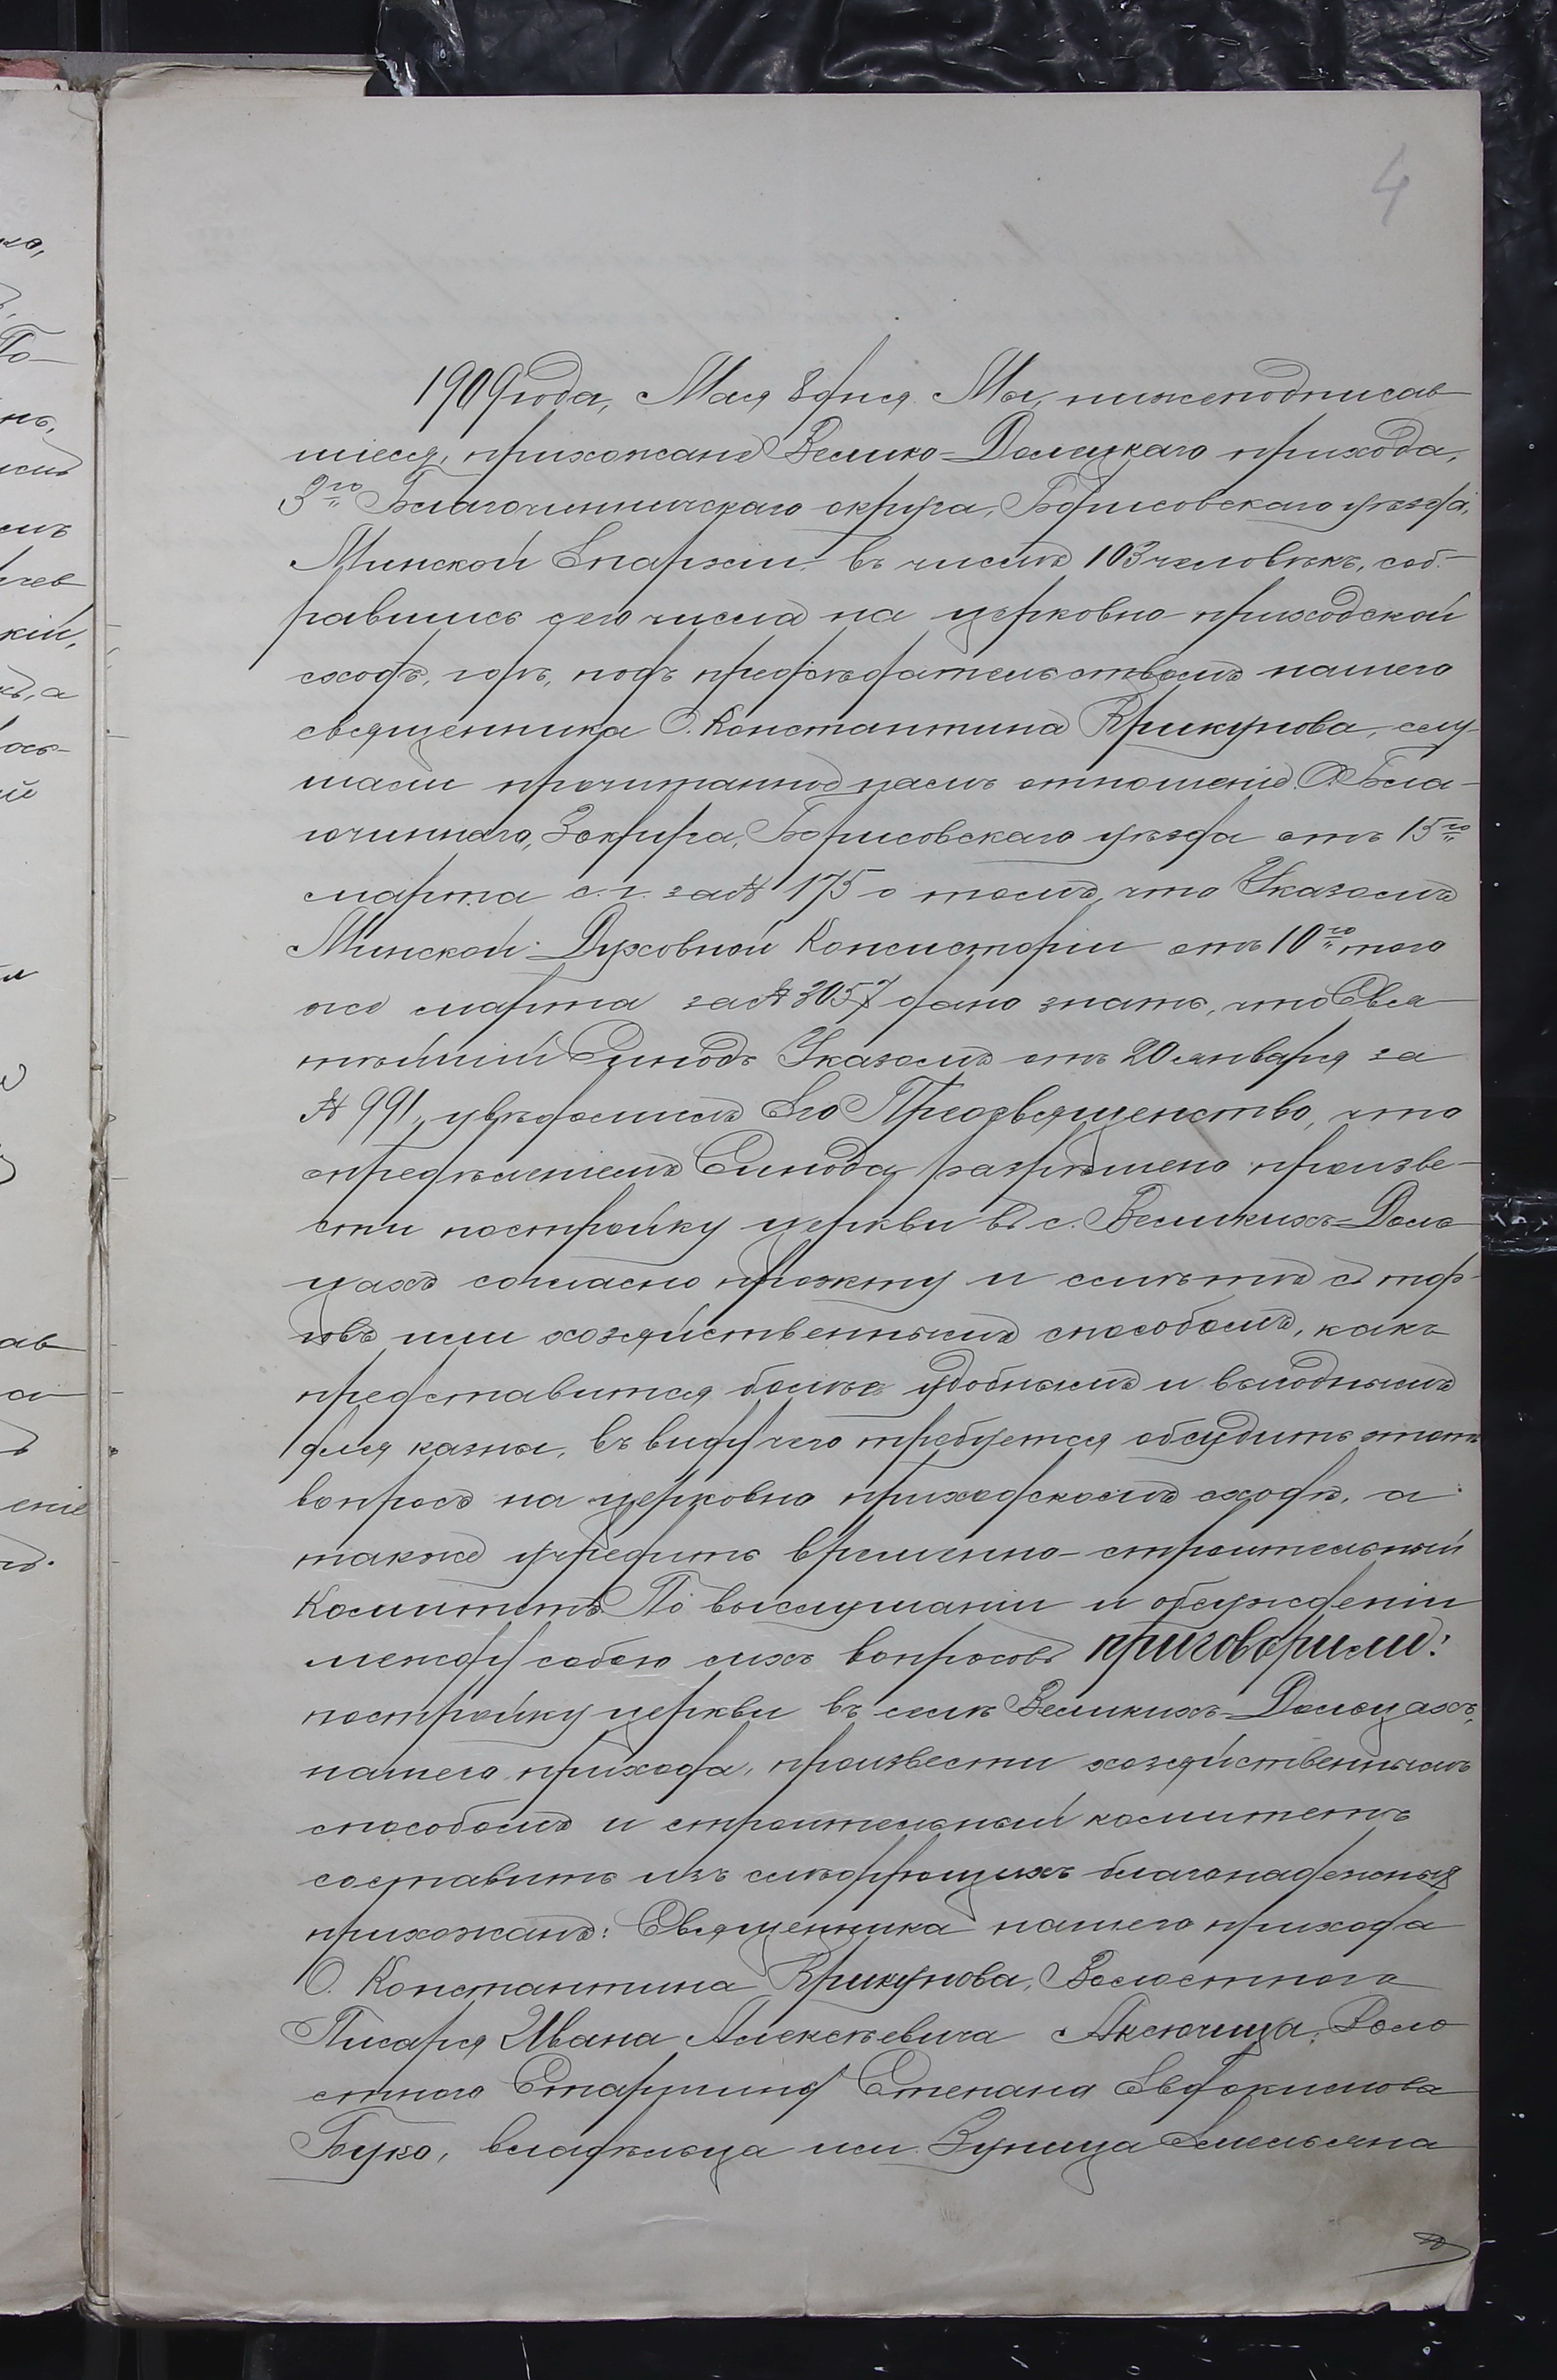 4
1909 года, Мая 8 дня. Мы, нижеподписав
шіеся, прихожане Велико-Долецкаго прихода,
3го Благочинническаго округа, Борисовскаго уѣзда,
Минской Епархіи въ числѣ 103 человѣкъ, соб-
равшись сего числа на церковно-приходской
сходъ, гдѣ, подъ предсѣдательствомъ нашего
священника О. Константина Крикунова, слу-
шали прочитанное намъ отношеніе О. Бла-
гочиннаго, 3 округа, Борисовскаго уѣзда отъ 15го
марта с. г. за № 175 о томъ, что Указомъ
Минской Духовной Консисторіи отъ 10го того
же марта за № 3057 дано знать, что Свя
тѣйшій Синодъ Указомъ отъ 20 января за
№ 991, увѣдомилъ Его Преосвященство, что
опредѣленіемъ Синода разрѣшено произве-
сти постройку церкви въ с. Великихъ-Доль
цахъ согласно проэкту и смѣтѣ съ тор-
говъ или хозяйственнымъ способомъ, какъ
представится болѣе удобнымъ и выгоднымъ
для казны, въ виду чего требуется обсудить этотъ
вопросъ на церковно приходскомъ сходѣ, а
также учредить временно-строительный
Комитетъ. По выслушаніи и обсужденіи
между собою сихъ вопросовъ приговорили:
постройку церкви въ селѣ Великихъ-Дольцахъ,
нашего прихода, произвести хозяйственнымъ
способомъ и строительный комитетъ
составить изъ слѣдующихъ благонадежныхъ
прихожанъ: Священника нашего прихода
О. Константина Крикунова, Волостного
Писаря Ивана Алексѣевича Аксючица, Воло
стного Старшину Степана Евдокимова
Буко, владѣльца им. Зуница Емельяна